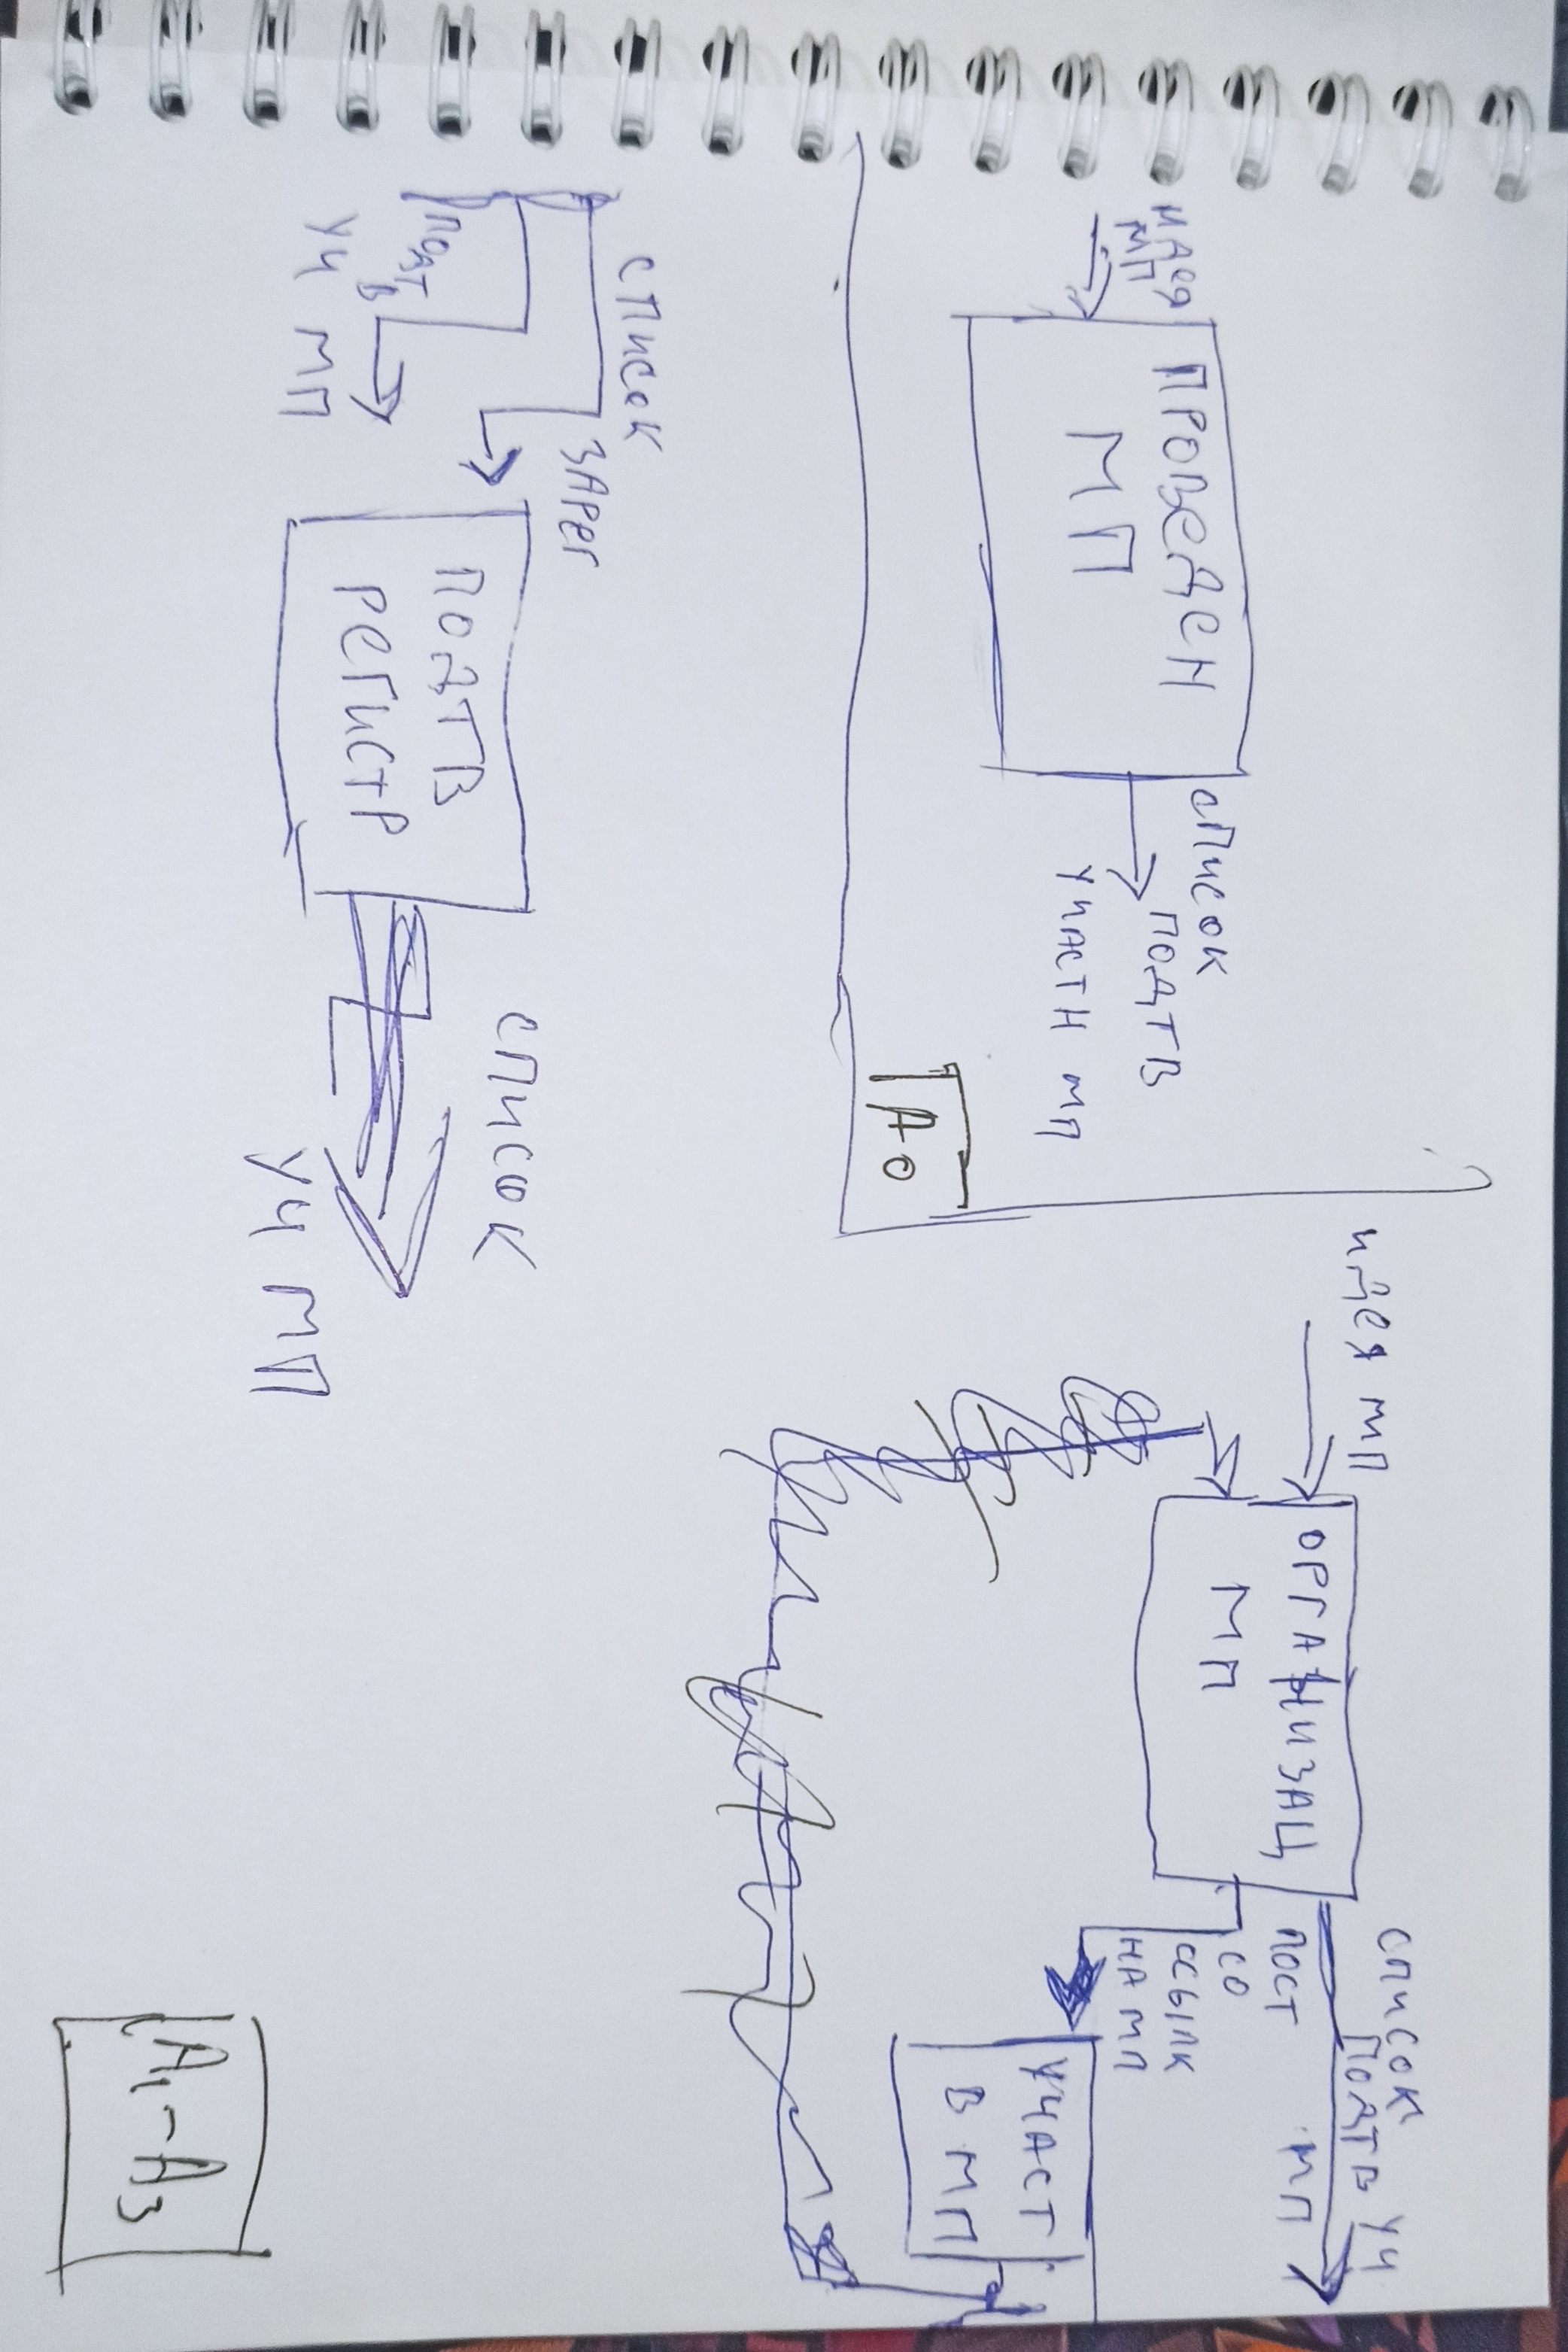 ИДЕЯ
МП
ПРОВЕДЕН
МП
СПИСОК
ПОДТВ
УЧАСТН МП
А0
ИДЕЯ МП
ОРГАНИЗАЦ
МП
СПИСОК
ПОДТВ УЧ
МП
ПОСТ
СО
ССЫЛК
НА МП
УЧАСТ
В МП
СПИСОК
ЗАРЕГ
ПОДТ
В
УЧ МП
ПОДТВ
РЕГИСТР
СПИСОК
УЧ МП
А1-А3